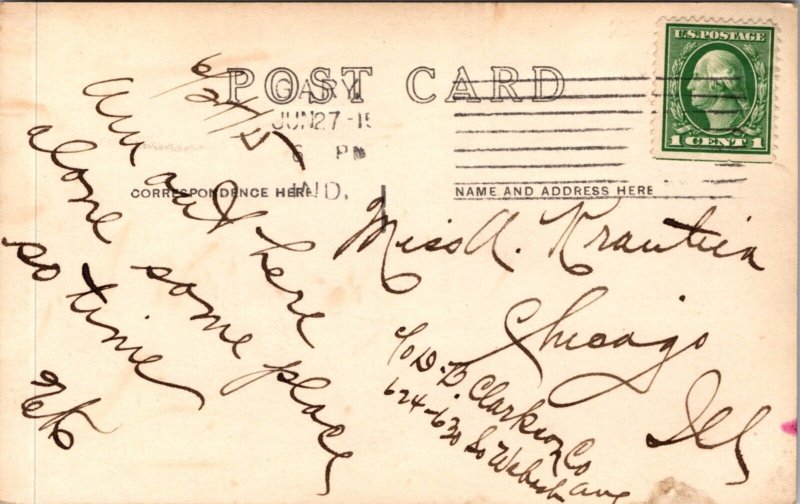 U.S. POSTAGE
1 CENT 1
POST CARD
GARY
JUN 27 - 15
6 PM
IND.
CORRESPONDENCE HERE
NAME AND ADDRESS HERE
6/27/15
Am out here
alone some place
so time
Miss A.
Chicago
Ill
c/o D.D. Clarkson Co
624-630 So Wabash Ave